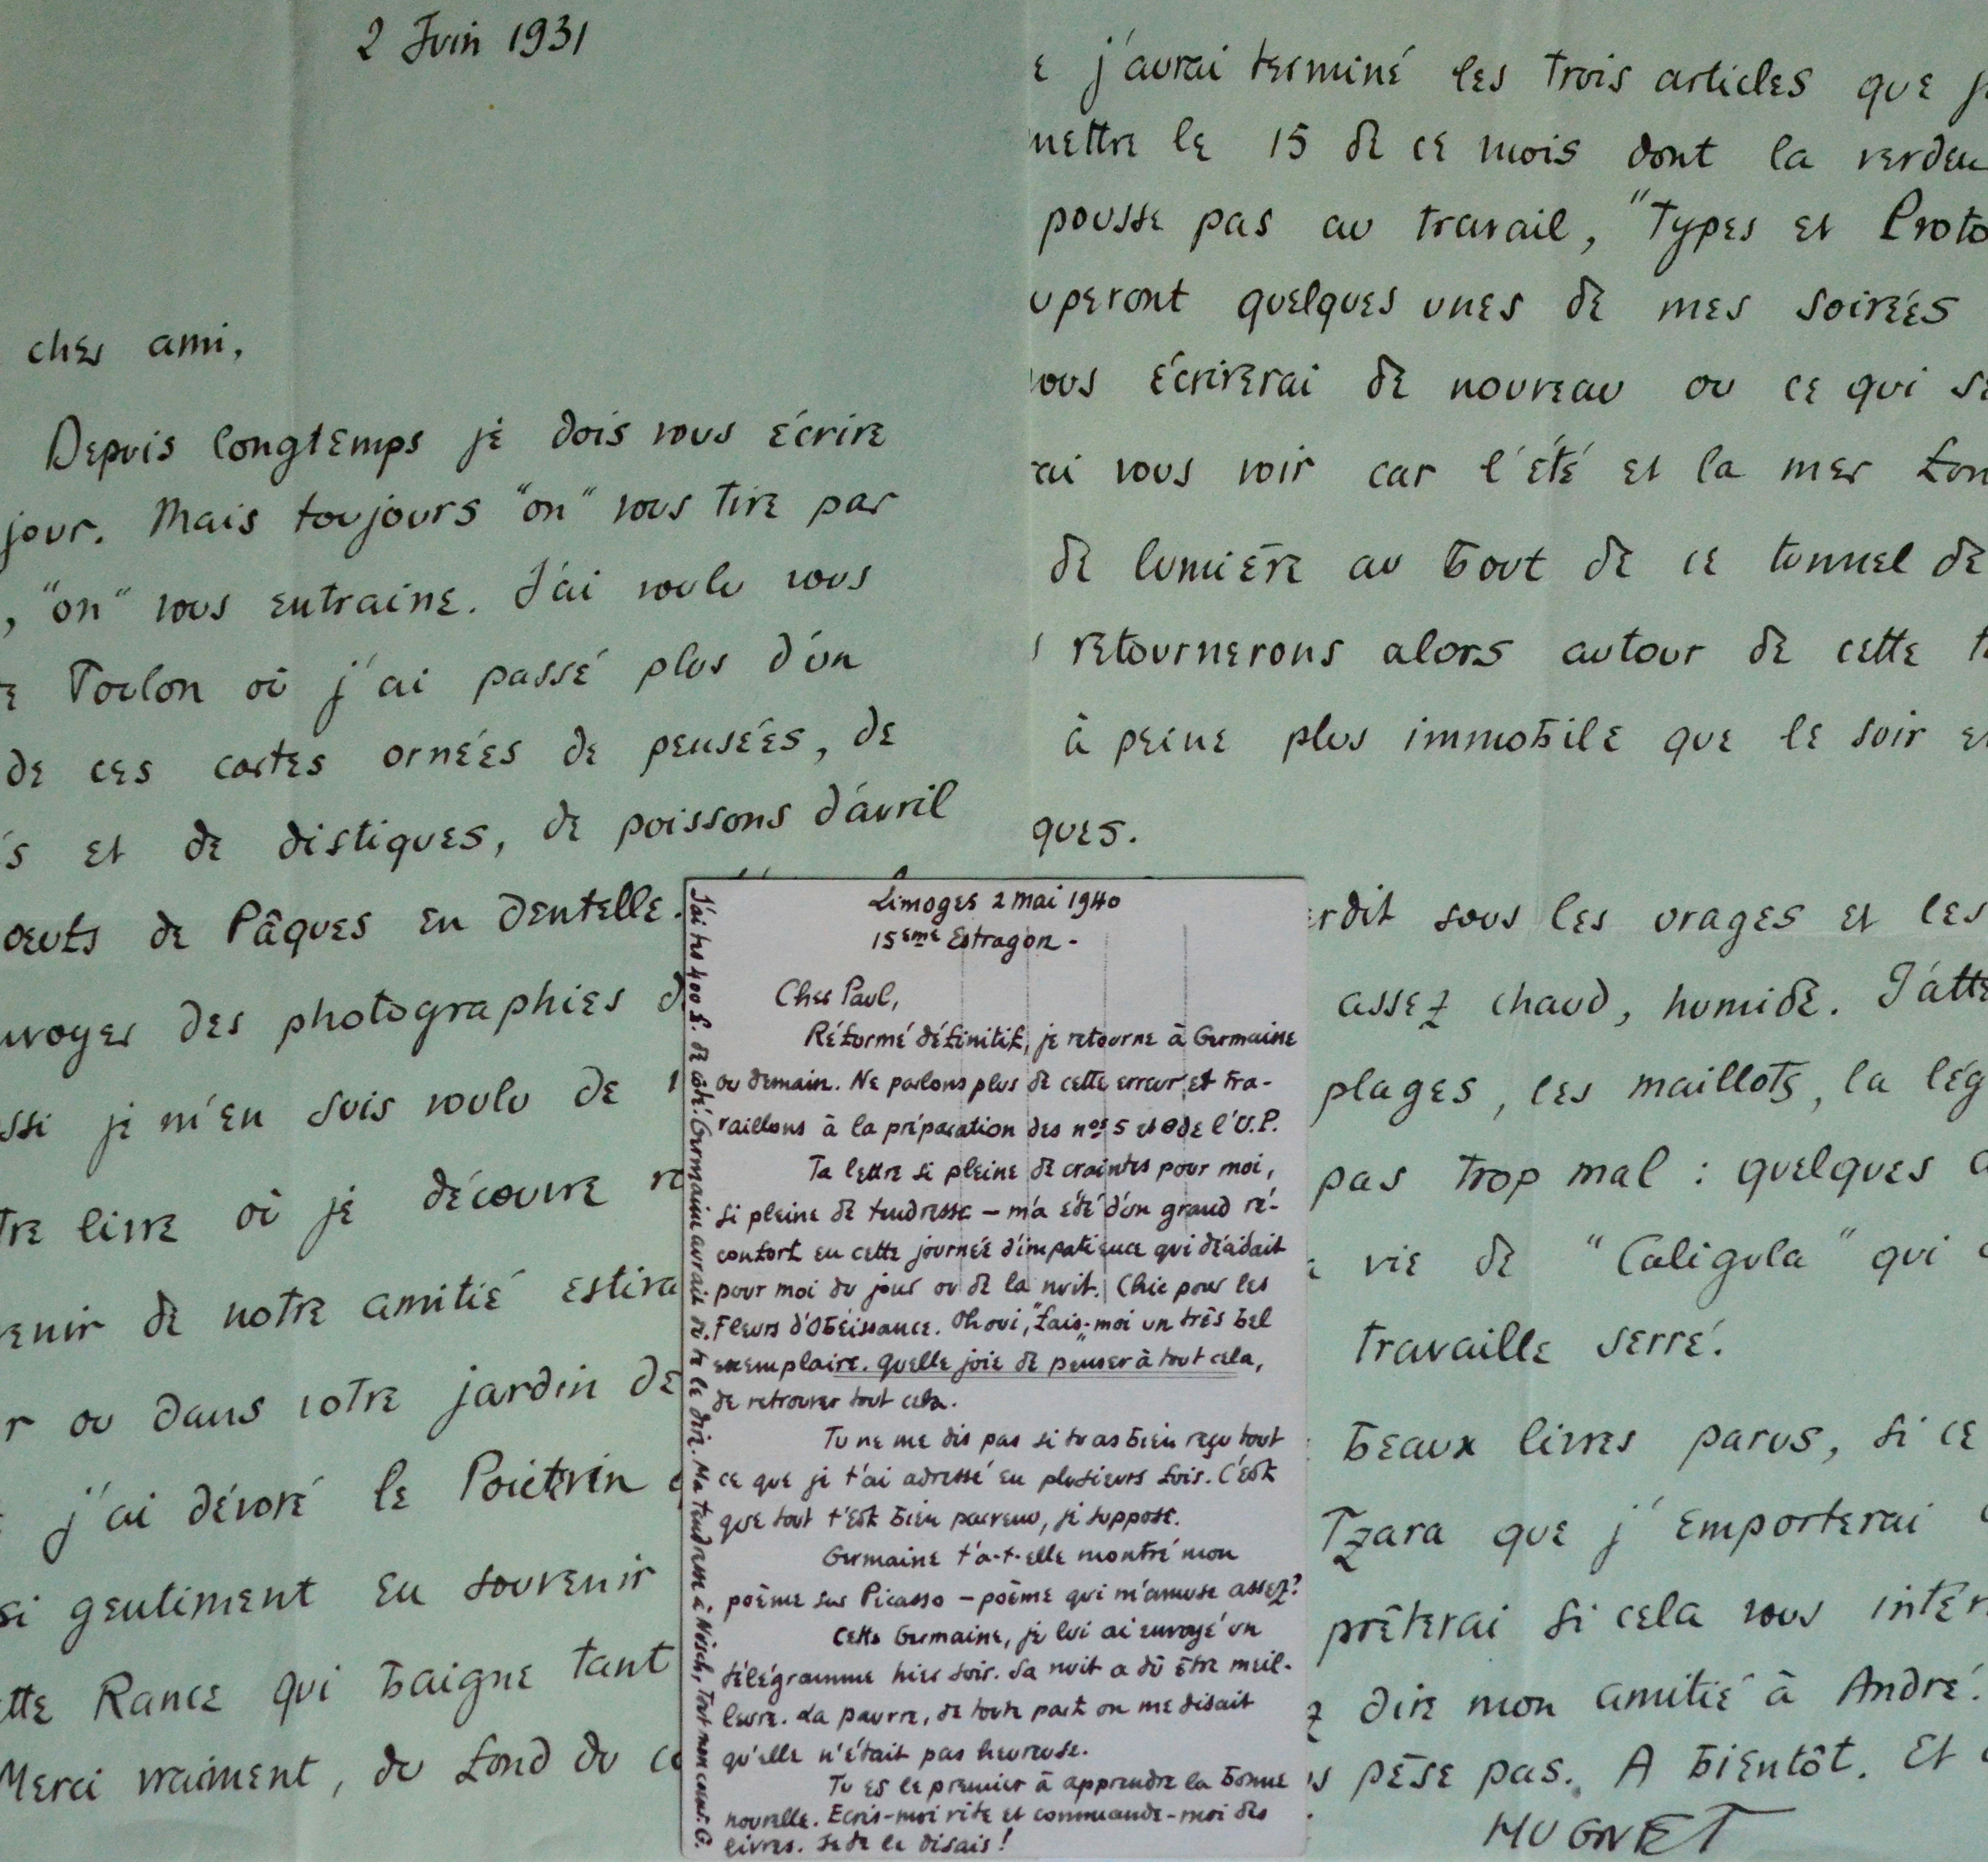 2 Juin 1931
cher ami,
Depuis longtemps je dois vous écrire
jour. Mais toujours "on" vous tire par
, "on" vous entraine. J'ai voulu vous
e Toulon où j'ai passé plus d'un
de ces cartes ornées de pensées, de
s et de distiques, de poissons d'avril
oeufs de Pâques en dentelle.
nvoyer des photographies d
ssi je m'en suis voulu de
tre livre où je découvre re
venir de notre amitié estiva
r ou dans votre jardin de
j'ai dévoré le Poictevin
si gentiment en souvenir
ette Rance qui baigne tant
Merci vraiment, du fond du co
e j'aurai terminé les trois articles que je
mettre le 15 de ce mois dont la verdeu
pousse pas au travail, "Types et Proto
uperont quelques unes de mes soirées
vous écrirerai de nouveau ou ce qui se
rai vous voir car l'été et la mer fon
de lumière au bout de ce tunnel de
retournerons alors autour de cette t
à peine plus immobile que le soir e
ques.
erdit sous les orages et les
assez chaud, humide. J'atte
plages, les maillots, la lég
pas trop mal : quelques
vie de "Caligula" qui
travaille serré.
beaux livres parus, si ce
Tzara que j'emporterai
prêterai si cela vous intér
z dire mon amitié à André.
s pèse pas. A bientôt. Et
HUGNET
Limoges 2 mai 1940
15ème Estragon -
Cher Paul,
Réformé définitif, je retourne à Germaine
ou demain. Ne parlons plus de cette erreur et tra-
vaillons à la préparation des nos 5 et 6 de l'U.P.
Ta lettre si pleine de craintes pour moi,
si pleine de tendresse - m'a été d'un grand ré-
confort en cette journée d'impatience qui décidait
pour moi du jour ou de la nuit. Chic pour les
Fleurs d'Obéissance. Oh oui, "fais-moi un très bel
exemplaire". Quelle joie de penser à tout cela,
de retrouver tout cela.
Tu ne me dis pas si tu as bien reçu tout
ce que je t'ai adressé en plusieurs fois. C'est
que tout t'est bien parvenu, je suppose.
Germaine t'a-t-elle montré mon
poème sur Picasso - poème qui m'amuse assez?
Cette Germaine, je lui ai envoyé un
télégramme hier soir. Sa nuit a dû être meil-
leure. La pauvre, de toute part on me disait
qu'elle n'était pas heureuse.
Tu es le premier à apprendre la bonne
nouvelle. Ecris-moi vite et commande-moi des
livres. Je te le disais!
J'ai tes 400 f. de côté. Germaine aurait dû te le dire. Ma tendresse à Nusch, tout mon coeur. G.